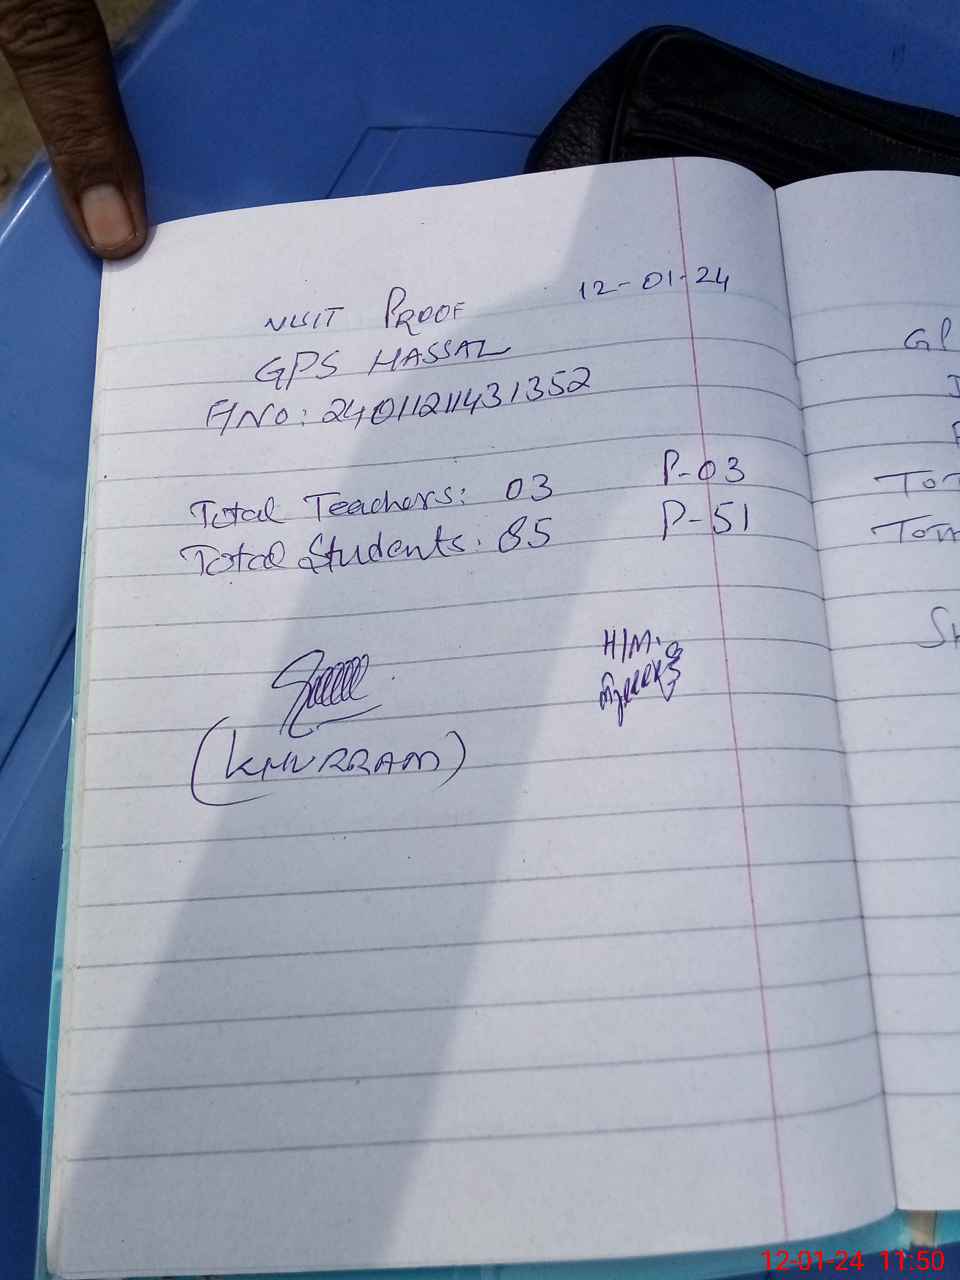 VISIT PROOF 12-01-24
GPS HASSAL
F/NO: 2401121143135​2
Total Teachers: 03 P-03
Total Students: 85 P-51
H/M
(KHURRAM)
GP
TOT
TOT
SH
12-01-24 11:50